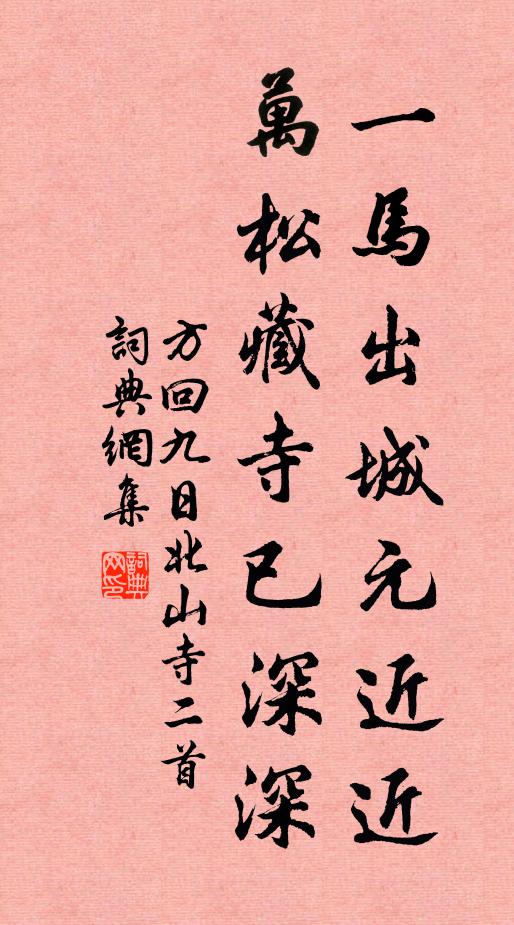 一馬出城元近近
萬松藏寺已深深
方回九日北山寺二首
詞典網集
詞典網印